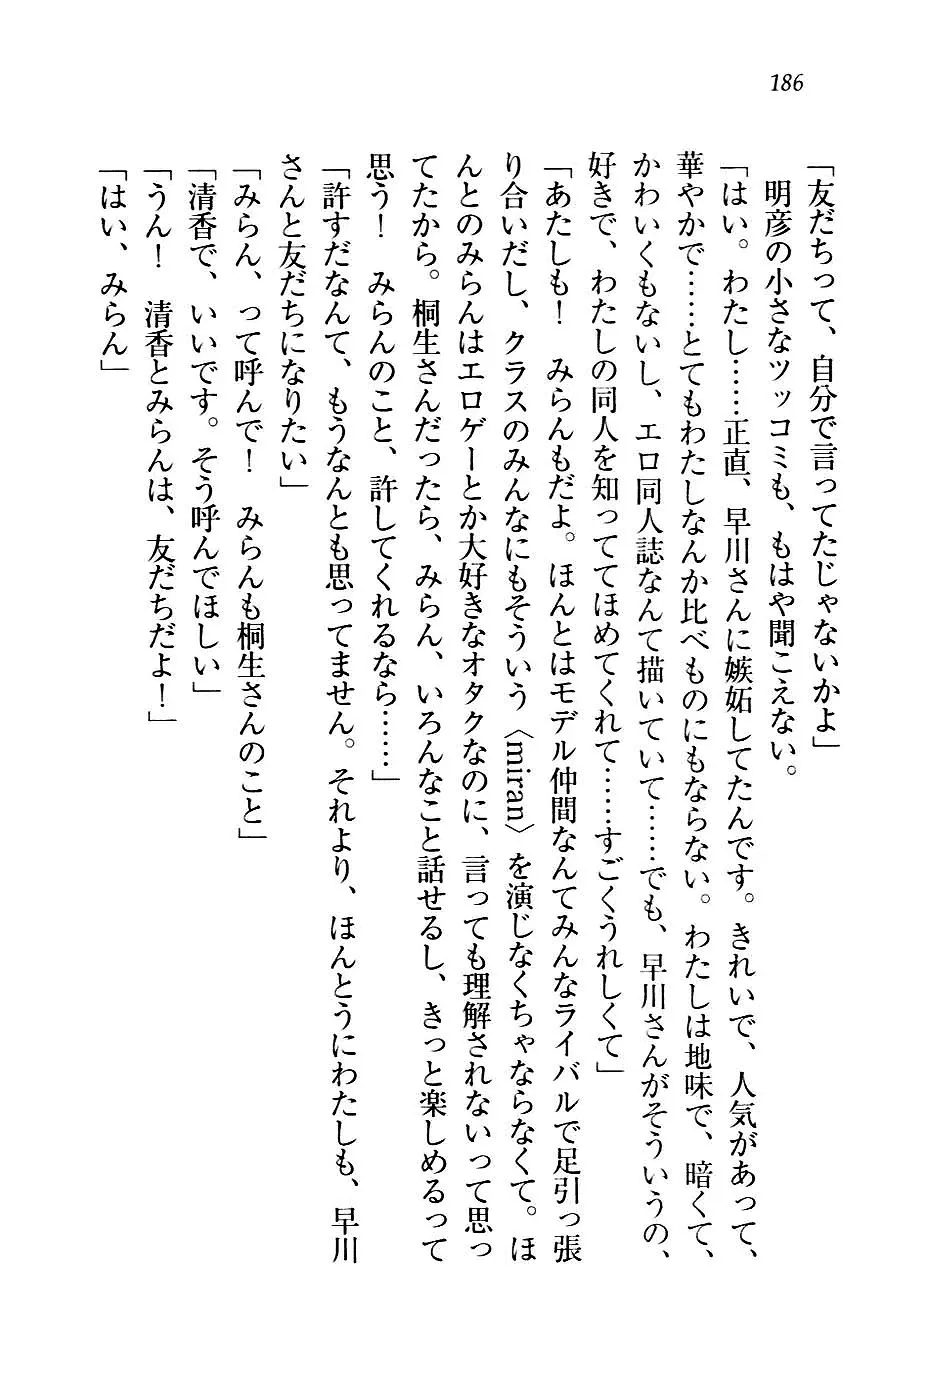 186
「友だちって、自分で言ってたじゃないかよ」
　明彦の小さなツッコミも、もはや聞こえない。
「はい。わたし……正直、早川さんに嫉妬してたんです。きれいで、人気があって、
華やかで……とてもわたしなんか比べものにもならない。わたしは地味で、暗くて、
かわいくもないし、エロ同人誌なんて描いていて……でも、早川さんがそういうの、
好きで、わたしの同人を知っててほめてくれて……すごくうれしくて」
「あたしも！　みらんもだよ。ほんとはモデル仲間なんてみんなライバルで足引っ張
り合いだし、クラスのみんなにもそういう〈miran〉を演じなくちゃならなくて。ほ
んとのみらんはエロゲーとか大好きなオタクなのに、言っても理解されないって思っ
てたから。桐生さんだったら、みらん、いろんなこと話せるし、きっと楽しめるって
思う！　みらんのこと、許してくれるなら……」
「許すだなんて、もうなんとも思ってません。それより、ほんとうにわたしも、早川
さんと友だちになりたい」
「みらん、って呼んで！　みらんも桐生さんのこと」
「清香で、いいです。そう呼んでほしい」
「うん！　清香とみらんは、友だちだよ！」
「はい、みらん」